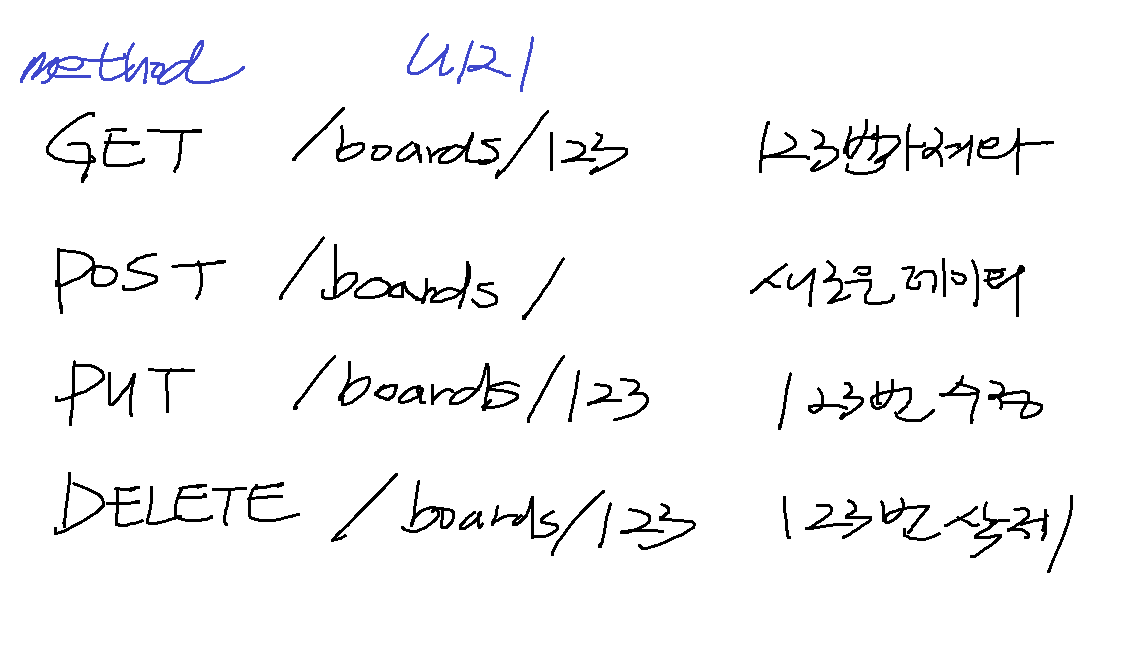 method URI
GET /boards/123 123번가져와
POST /boards/ 새로운데이터
PUT /boards/123 123번수정
DELETE /boards/123 123번삭제